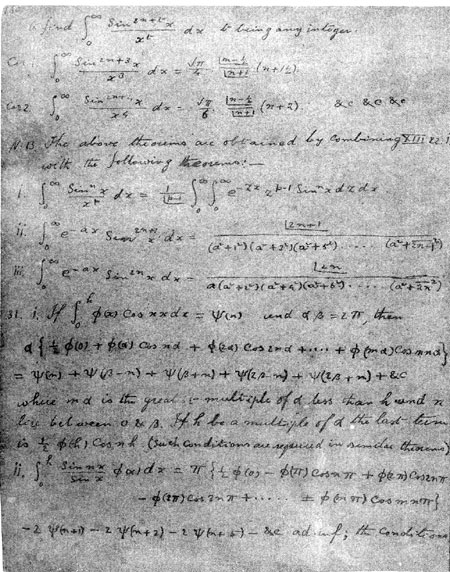 to find ∫₀^∞ Sin^{2n+t}x / x^t dx t being any integer.
Cor 1. ∫₀^∞ Sin^{2n+3}x / x³ dx = √π/4 · |n-½ / |n+1 (n+1½)
Cor 2. ∫₀^∞ Sin^{2n+4}x / x⁴ dx = √π/6 · |n-½ / |n+1 (n+2) &c &c &c
N.B. The above theorems are obtained by combining XIII
with the following theorems:—
i. ∫₀^∞ Sinⁿx / x^p dx = 1/|p-1 ∫₀^∞ ∫₀^∞ e^{-zx} z^{p-1} Sinⁿx dz dx
ii. ∫₀^∞ e^{-ax} Sin^{2n+1}x dx = |2n+1 / (a²+1²)(a²+3²)(a²+5²) ..... (a²+2n+1²)
iii. ∫₀^∞ e^{-ax} Sin^{2n}x dx = |2n / a(a²+2²)(a²+4²)(a²+6²) ..... (a²+2n²)
31. i. If ∫₀^h φ(x) Cos nx dx = ψ(n) and αβ = 2π, then
α {½ φ(0) + φ(α) Cos nα + φ(2α) Cos 2nα + .... + φ(mα) Cos mnα}
= ψ(n) + ψ(β-n) + ψ(β+n) + ψ(2β-n) + ψ(2β+n) + &c
where mα is the greatest multiple of α less than h and n
lies between 0 & β. If h be a multiple of α the last term
is ½ φ(h) Cos nh (Such conditions are required in similar theorems)
ii. ∫₀^h Sin nx / Sin x φ(x) dx = π {½ φ(0) - φ(π) Cos nπ + φ(2π) Cos 2nπ
- φ(3π) Cos 3nπ + ..... ± φ(mπ) Cos mnπ}
- 2 ψ(n+1) - 2 ψ(n+3) - 2 ψ(n+5) - &c ad inf; the conditions